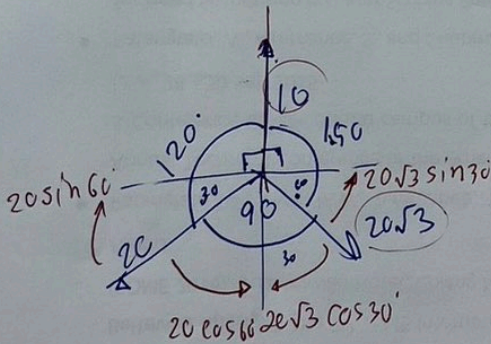 10
120°
150
20sin60°
30
60
20√3 sin30°
90
20√3
20
30
20 cos60° 20√3 cos30°